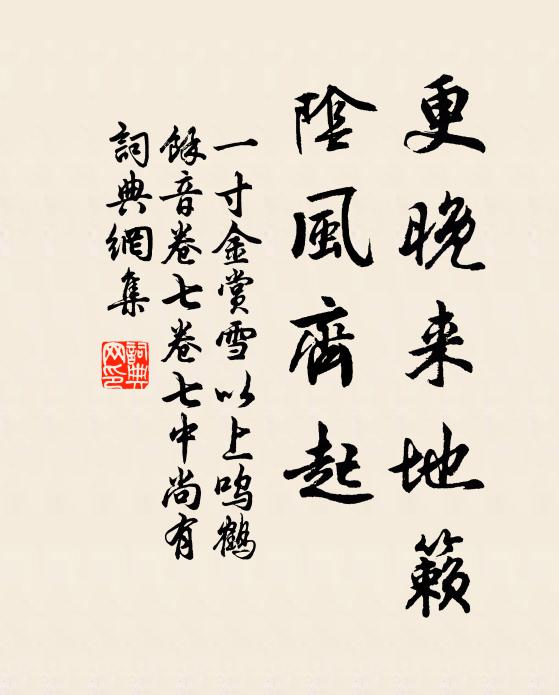 更晚来地籁
陰風齊起
一寸金赏雪以上鸣鹤
餘音卷七卷七中尚有
詞典網集
詞典网印